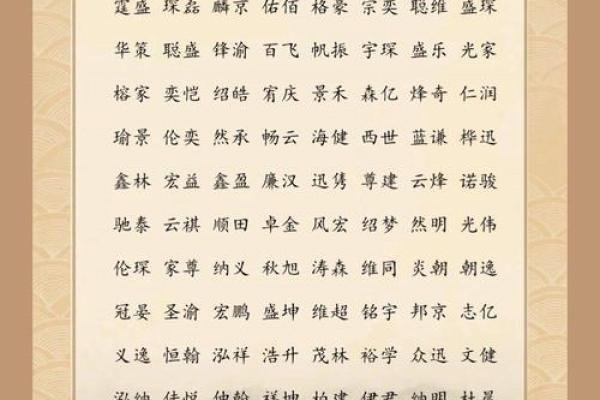 霆盛 琛磊 麟京 佑佰 格豪 宗奕 聪维 盛琛
华策 聪盛 锋渝 百飞 帆振 宇琛 盛乐 光家
榕家 奕恺 绍皓 宥庆 景禾 森亿 烽奇 仁润
瑜景 伦奕 然承 畅云 海健 西世 蓝谦 桦迅
鑫林 宏益 鑫盈 廉汉 迅隽 尊建 云烽 诺骏
驰泰 云祺 顺田 卓金 风宏 绍梦 然明 光伟
伦琛 家尊 纳义 秋旭 涛森 维同 炎朝 朝逸
冠晏 圣渝 宏鹏 盛坤 维超 铭宇 邦京 志亿
义逸 恒翰 泓祥 浩升 茂林 裕学 众迅 文健
泓纳 佳悦 仲翰 祥坤 柏建 伊君 纳明